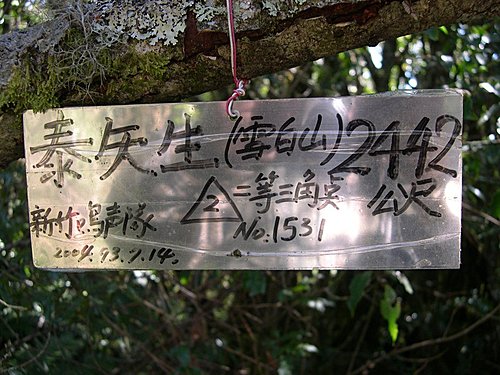 泰矢生(雪白山)2442公尺
2 二等三角点 No.1531
新竹鳥專隊
2004.93.7.14.